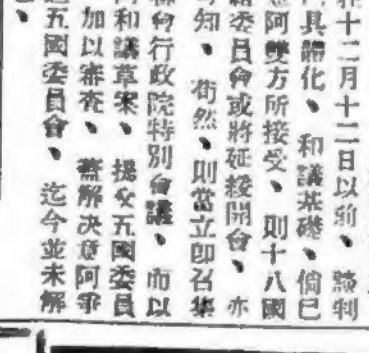 十二月十二日以前、談判
具體化、和議基礎、倘已
阿雙方所接受、則十八國
委員會或將延緩開會、亦
知、苟然、則當立卽召集
會行政院特別會議、而以
和議草案、提交五國委員
加以審查、蓋解决意阿爭
五國委員會、迄今並未解
、